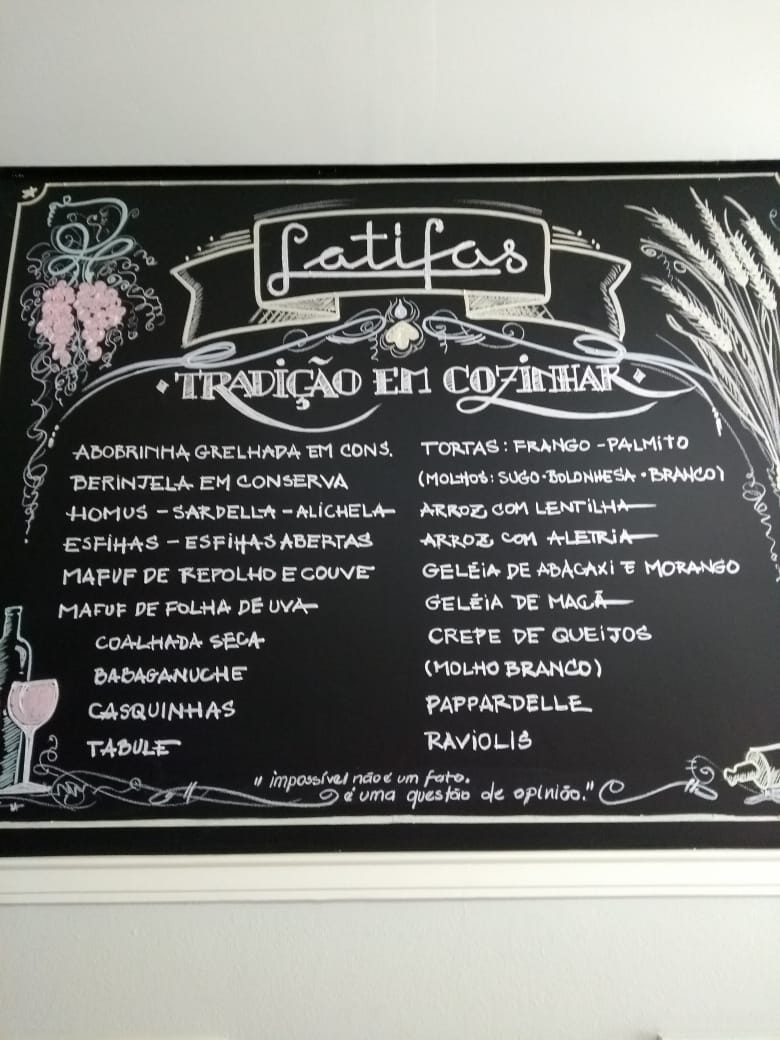 Latifas
TRADIÇÃO EM COZINHAR
ABOBRINHA GRELHADA EM CONS.
BERINJELA EM CONSERVA
HOMUS - SARDELLA - ALICHELA
ESFIHAS - ESFIHAS ABERTAS
MAFUF DE REPOLHO E COUVE
MAFUF DE FOLHA DE UVA
COALHADA SECA
BABAGANUCHE
CASQUINHAS
TABULE
TORTAS: FRANGO - PALMITO
(MOLHOS: SUGO · BOLONHESA · BRANCO)
ARROZ COM LENTILHA
ARROZ COM ALETRIA
GELÉIA DE ABACAXI E MORANGO
GELÉIA DE MAÇÃ
CREPE DE QUEIJOS
(MOLHO BRANCO)
PAPPARDELLE
RAVIOLIS
"impossível não é um fato.
é uma questão de opinião."